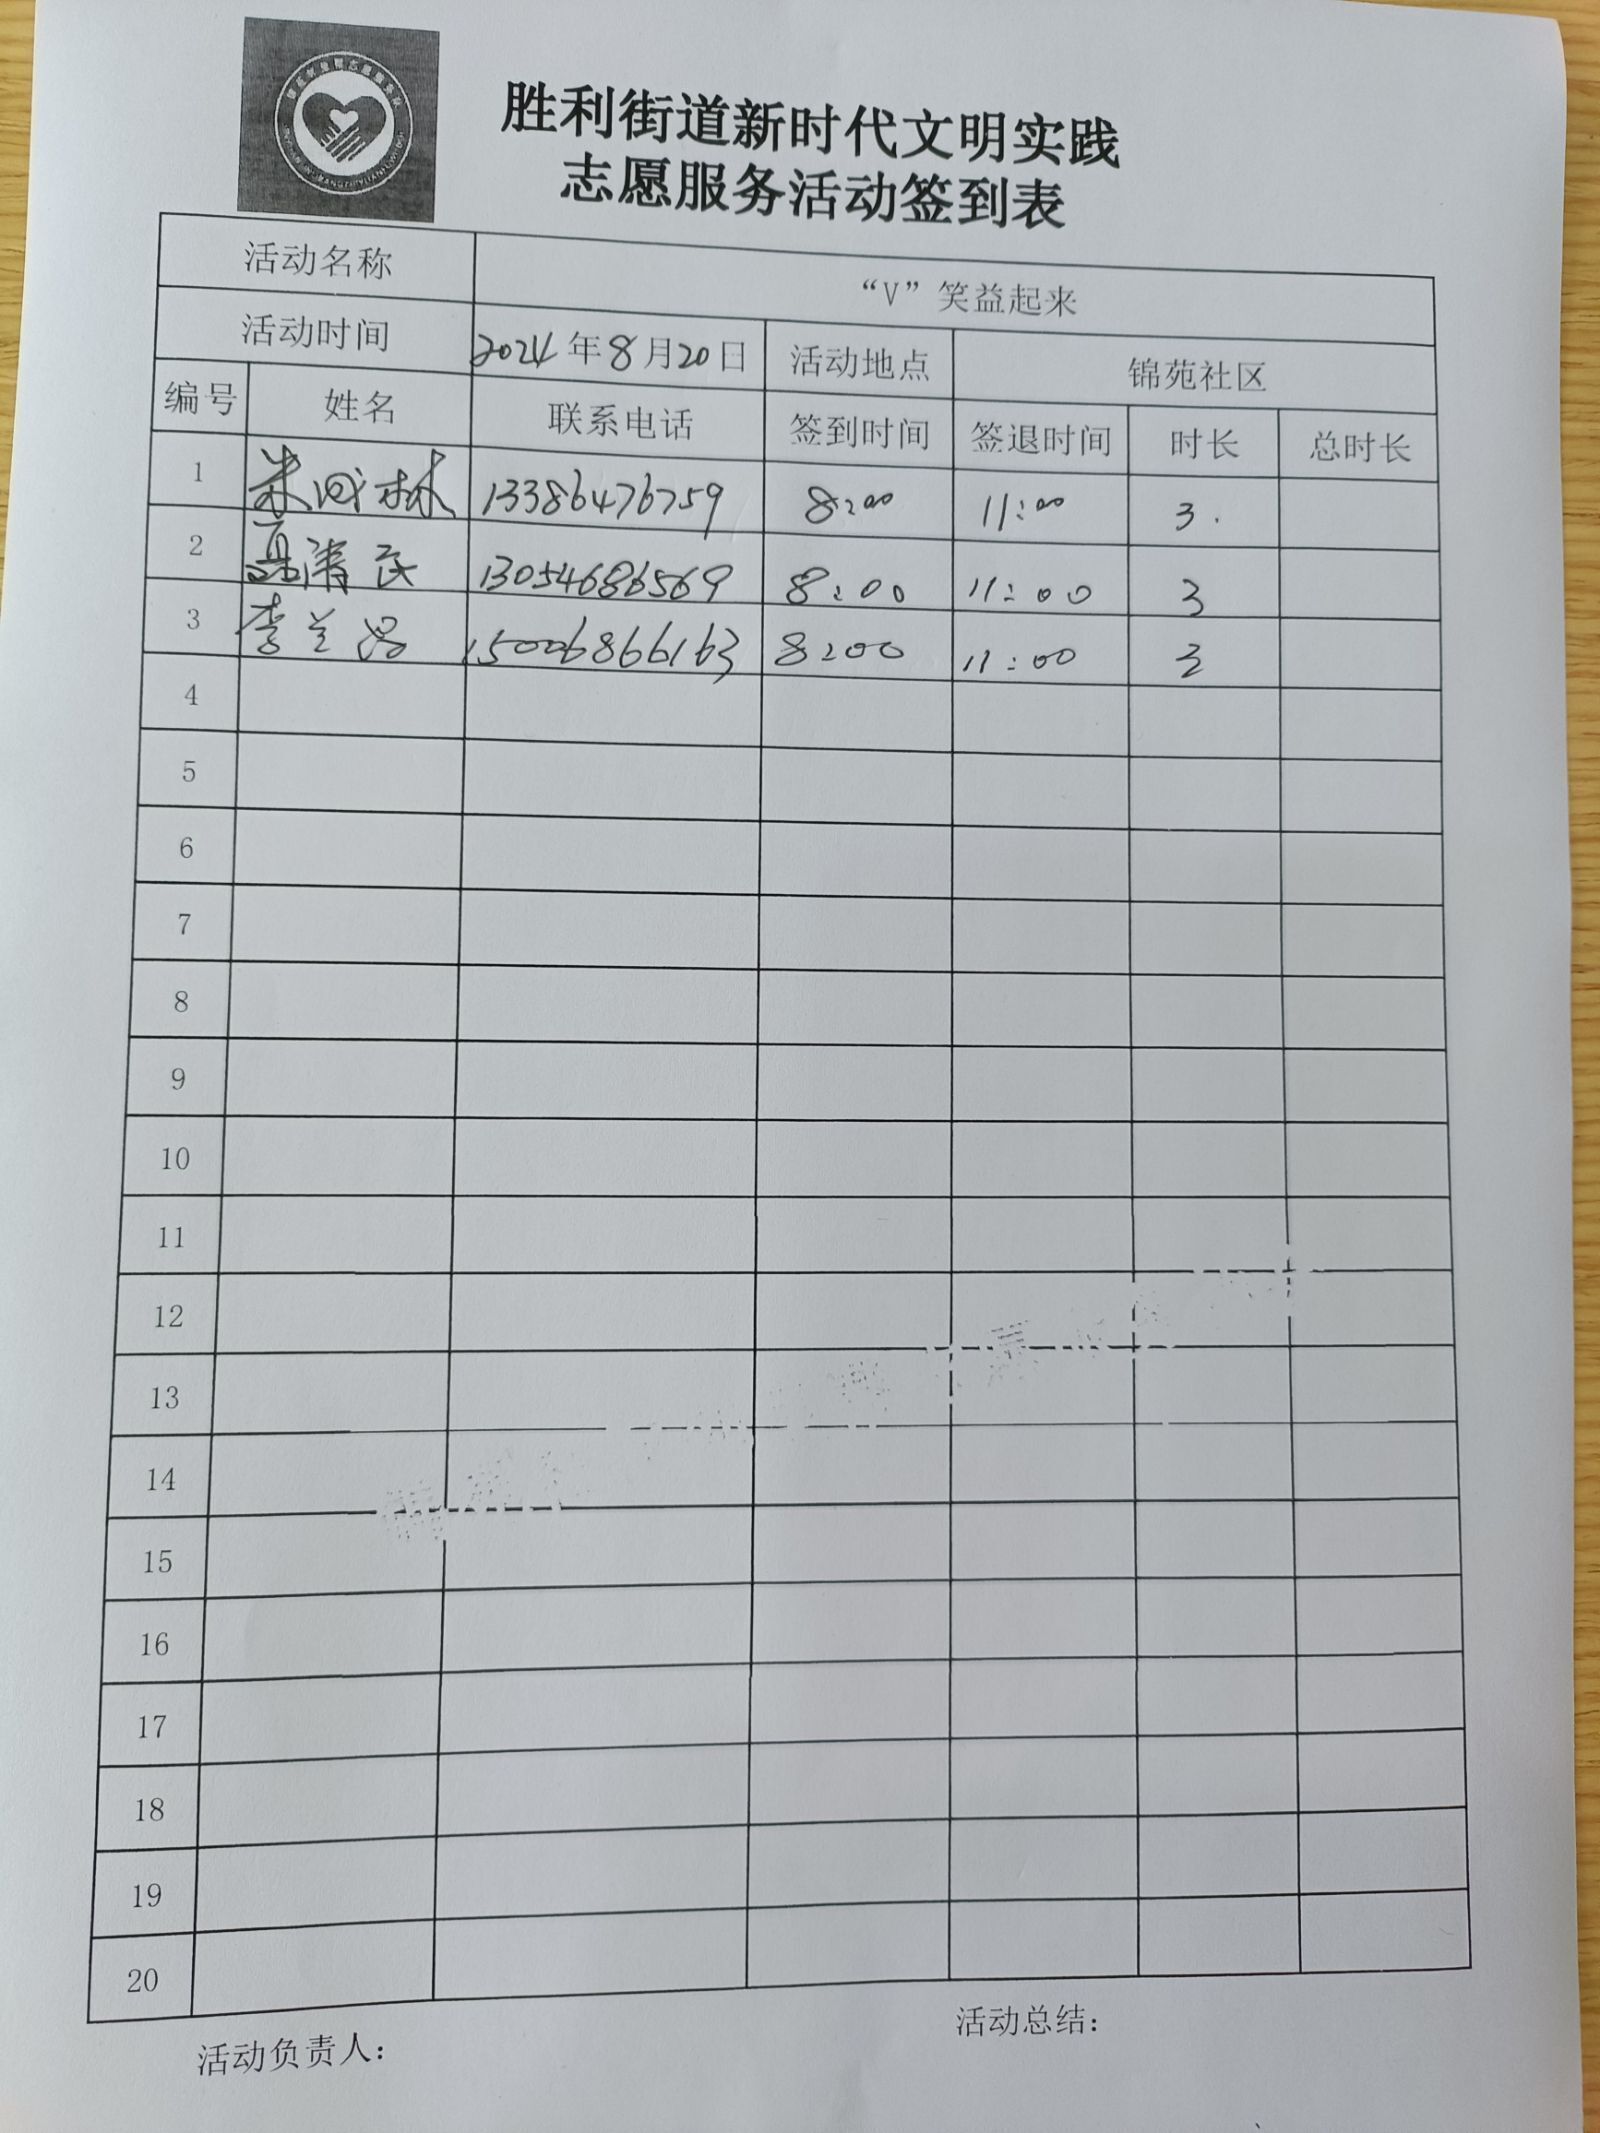 胜利街道新时代文明实践
志愿服务活动签到表
活动名称 “V”笑益起来
活动时间 2024年8月20日 活动地点 锦苑社区
编号 姓名 联系电话 签到时间 签退时间 时长 总时长
1 13386476759 8:00 11:00 3.
2 13054686569 8:00 11:00 3
3 李兰 15006866163 8:00 11:00 3
4
5
6
7
8
9
10
11
12
13
14
15
16
17
18
19
20
活动负责人： 活动总结：